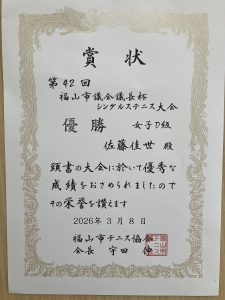 賞状
第42回
福山市議会議長杯
シングルステニス大会
優勝 女子D級
佐藤佳世 殿
頭書の大会に於いて優秀な
成績をおさめられましたので
その栄誉を讃えます
2026年3月8日
福山市テニス協会
会長 宇田 伸